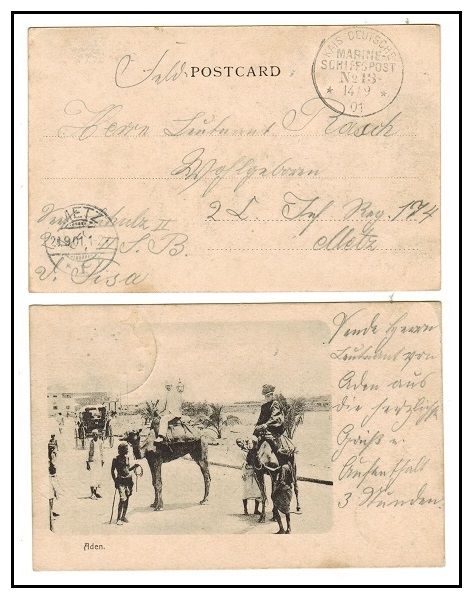 Feld POSTCARD
KAIS. DEUTSCHE
MARINE-
SCHIFFSPOST
No 18
* 14/9 *
01
Herrn Leutnant
Wohlgeboren
2 L. Inf. Reg. 174
Metz
METZ
21.9.01.
S. B.
Aden.
Sende Herrn
Leutnant von
Aden aus
die herzlichsten
Grüße
Aufenthalt
3 Stunden.